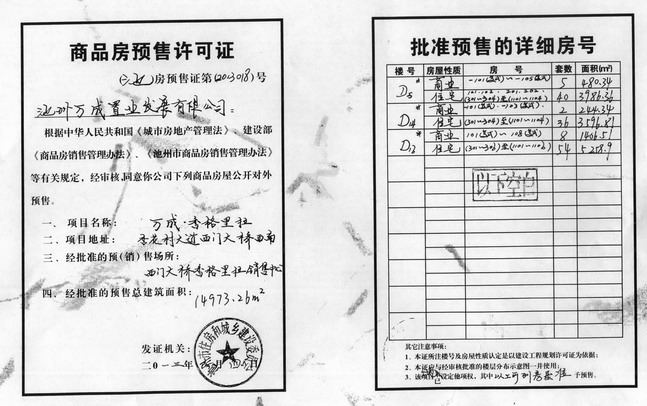 商品房预售许可证
房预售证第(2013018)号
池州万成置业发展有限公司:
根据中华人民共和国《城市房地产管理法》、建设部
《商品房销售管理办法》、《池州市商品房销售管理办法》
等有关规定,经审核,同意你公司下列商品房屋公开对外
预售。
一、项目名称: 万成·香格里拉
二、项目地址: 杏花村大道西门大桥西南
三、经批准的预(销)售场所:
西门大桥香格里拉销售中心
四、经批准的预售总建筑面积: 14973.26m²
发证机关:
市住房和城乡建设委员会
二〇一三年
批准预售的详细房号
楼号 房屋性质 房号 套数 面积(m²)
D5 商业 5 480.34
住宅 101.102.201.202. (301~304)至(1101~1104) 40 3986.36
D14 商业 2 244.32
住宅 (301~304)至(1101~1104) 36 3596.81
D13 商业 8 1406.51
住宅 54 5258.9
以下空白
其它注意事项:
1、本证所注楼号及房屋性质认定是以建设工程规划许可证为依据;
2、本证应与经审核批准的楼层分布示意图一并使用;
3、该项目已设定他项权,其中以上可列房屋准予预售。